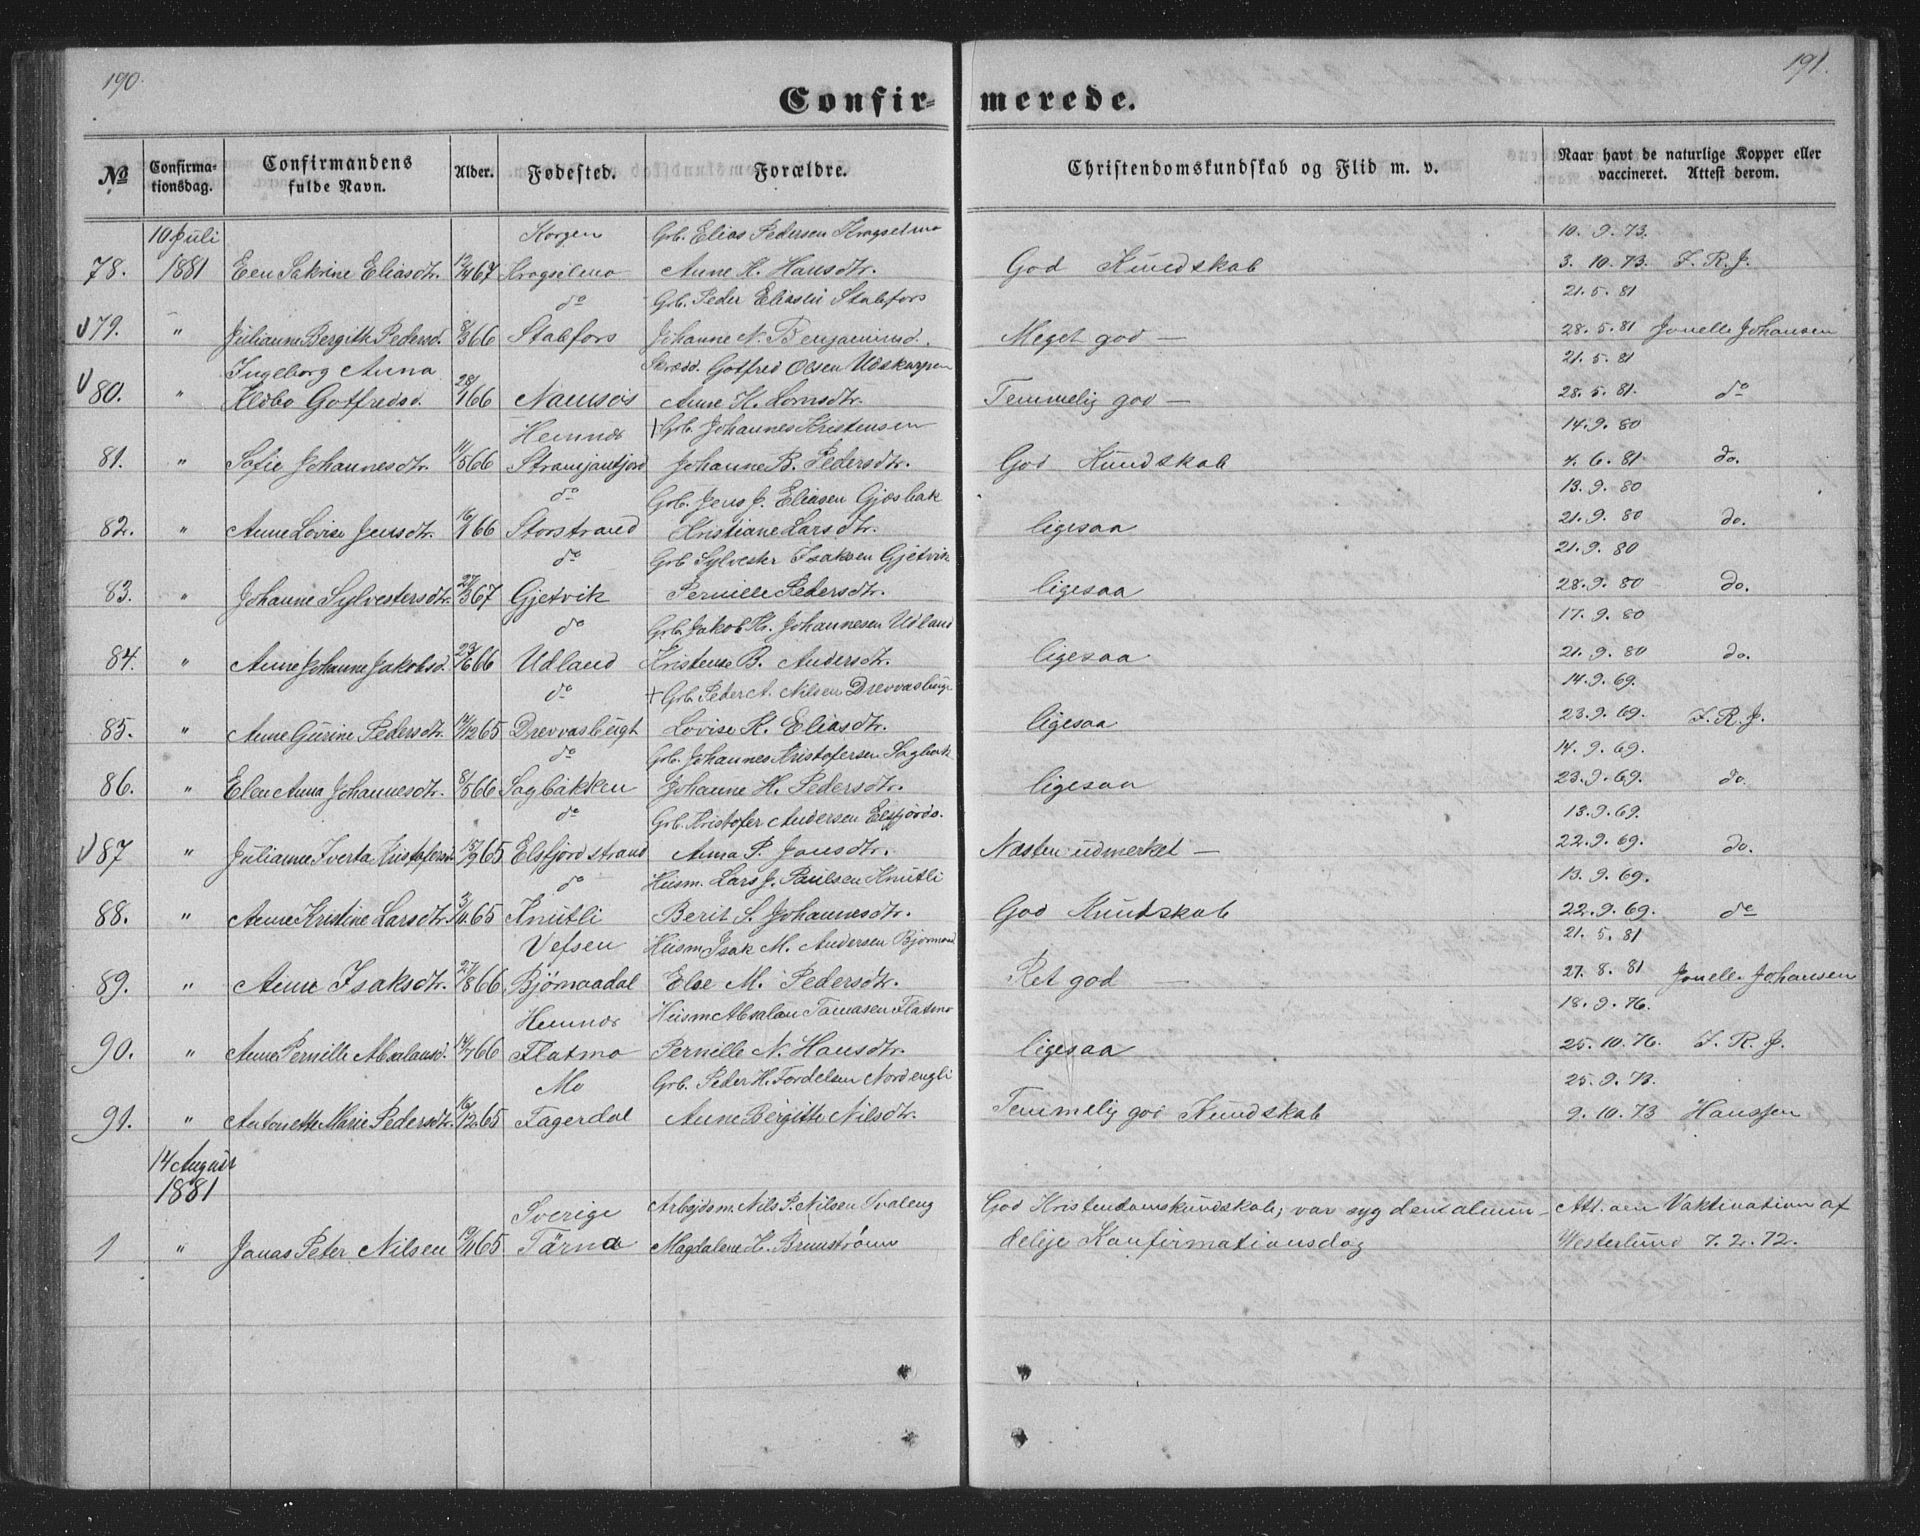 190. 191.
Confir- merede.
№ Confirma-tionsdag. Confirmandens fulde Navn. Alder. Fødested. Forældre. Christendomskundskab og Flid m. v. Naar havt de naturlige Kopper eller vaccineret. Attest derom.
10 Juli Korgen Grb. Elias Pedersen 10. 9. 73.
78. 1881 Sakrine Eliasdtr. 67 Anne H. Hansdtr. God Kundskab 3. 10. 73. J. R. J.
do Grb. Peder Eliasen Stabfors 21. 5. 81
79. " Julianne Bergith Pedersd. 66 Stabfors Johanne N. Benjaminsd. Meget god — 28. 5. 81 Jonelle Johansen
Ingeborg Anna Gotfred Olsen 21. 5. 81
80. " Gotfredsd. 28/1 66 Namsos Anne H. Temmelig god — 28. 5. 81. do
Hemnes + Grb. Johannes Kristensen 14. 9. 80
81. " Sofie Johannesdtr. 66 Johanne B. Pedersdtr. God Kundskab 6. 81. do.
do Grb. Jens J. Eliasen Gjøsbak 13. 9. 80
82. " Anne Lovise Jensdtr. 66 Storstrand Kristiane Larsdtr. ligesaa 21. 9. 80 do.
do Grb. Sylvester Isaksen Gjetvik 21. 9. 80
83. " Johanne Sylvestersdtr. 27/3 67 Gjetvik Pernille Pedersdtr. ligesaa 28. 9. 80 do.
do Grb. Jakob H. Johannesen Udland 17. 9. 80
84. " Anne Johanne Jakobsd. 23/6 66 Udland Kristense B. Andersdtr. ligesaa 21. 9. 80 do.
do + Grb. Peder A. Nilsen 14. 9. 69.
85. " Anne Gurine Pedersdtr. 14/12 65 Drevvasbugt Lovise K. Eliasdtr. ligesaa 23. 9. 69. J. R. J.
do Grb. Johannes Kristofersen Sagbak 14. 9. 69.
86. " Elen Anna Johannesdtr. 8/5 66 Sagbakken Johanne H. Pedersdtr. ligesaa 23. 9. 69. do
do Grb. Kristofer Andersen Elsfjords. 13. 9. 69.
87 " Julianne Iverta Kristofersd. 18/9 65 Elsfjordstrand Anna P. Jonsdtr. Næsten udmerket — 22. 9. 69. do.
do Husm. Lars J. Paulsen Knutli 13. 9. 69.
88. " Anne Kristine Larsdtr. 65 Knutli Berit S. Johannesdtr. God Kundskab 22. 9. 69. do
Vefsen Husm Isak M. Andersen 21. 5. 81
89. " Anne Isaksdtr. 27/8 66 Bjørnaadal Else M. Pedersdtr. Ret god — 27. 8. 81 Jonelle Johansen
Hemnes Husm Absalon Tomasen Flatmo 18. 9. 76.
90. " Anne Pernille Absalonsd. 14/7 66 Flatmo Pernille N. Hansdtr. ligesaa 25. 10. 76. J. R. J.
Mo Grb. Peder H. Fordelsen Nordengli 25. 9. 73.
91. " Antonette Marie Pedersdtr. 16/12 65 Fagerdal Anne Bergitte Nilsdtr. Temmelig god Kundskab 9. 10. 73 Hanssen
14 August
1881
Sverige Arbejdsm. Nils P. Nilsen Svaleng God Kristendomskundskab; var syg den almin- Att. om Vaktination af
1 " Jonas Peter Nilsen 19/11 65 Tärna Magdalene H. Brunstrøm delige Konfirmationsdag Westerlund 7. 2. 72.